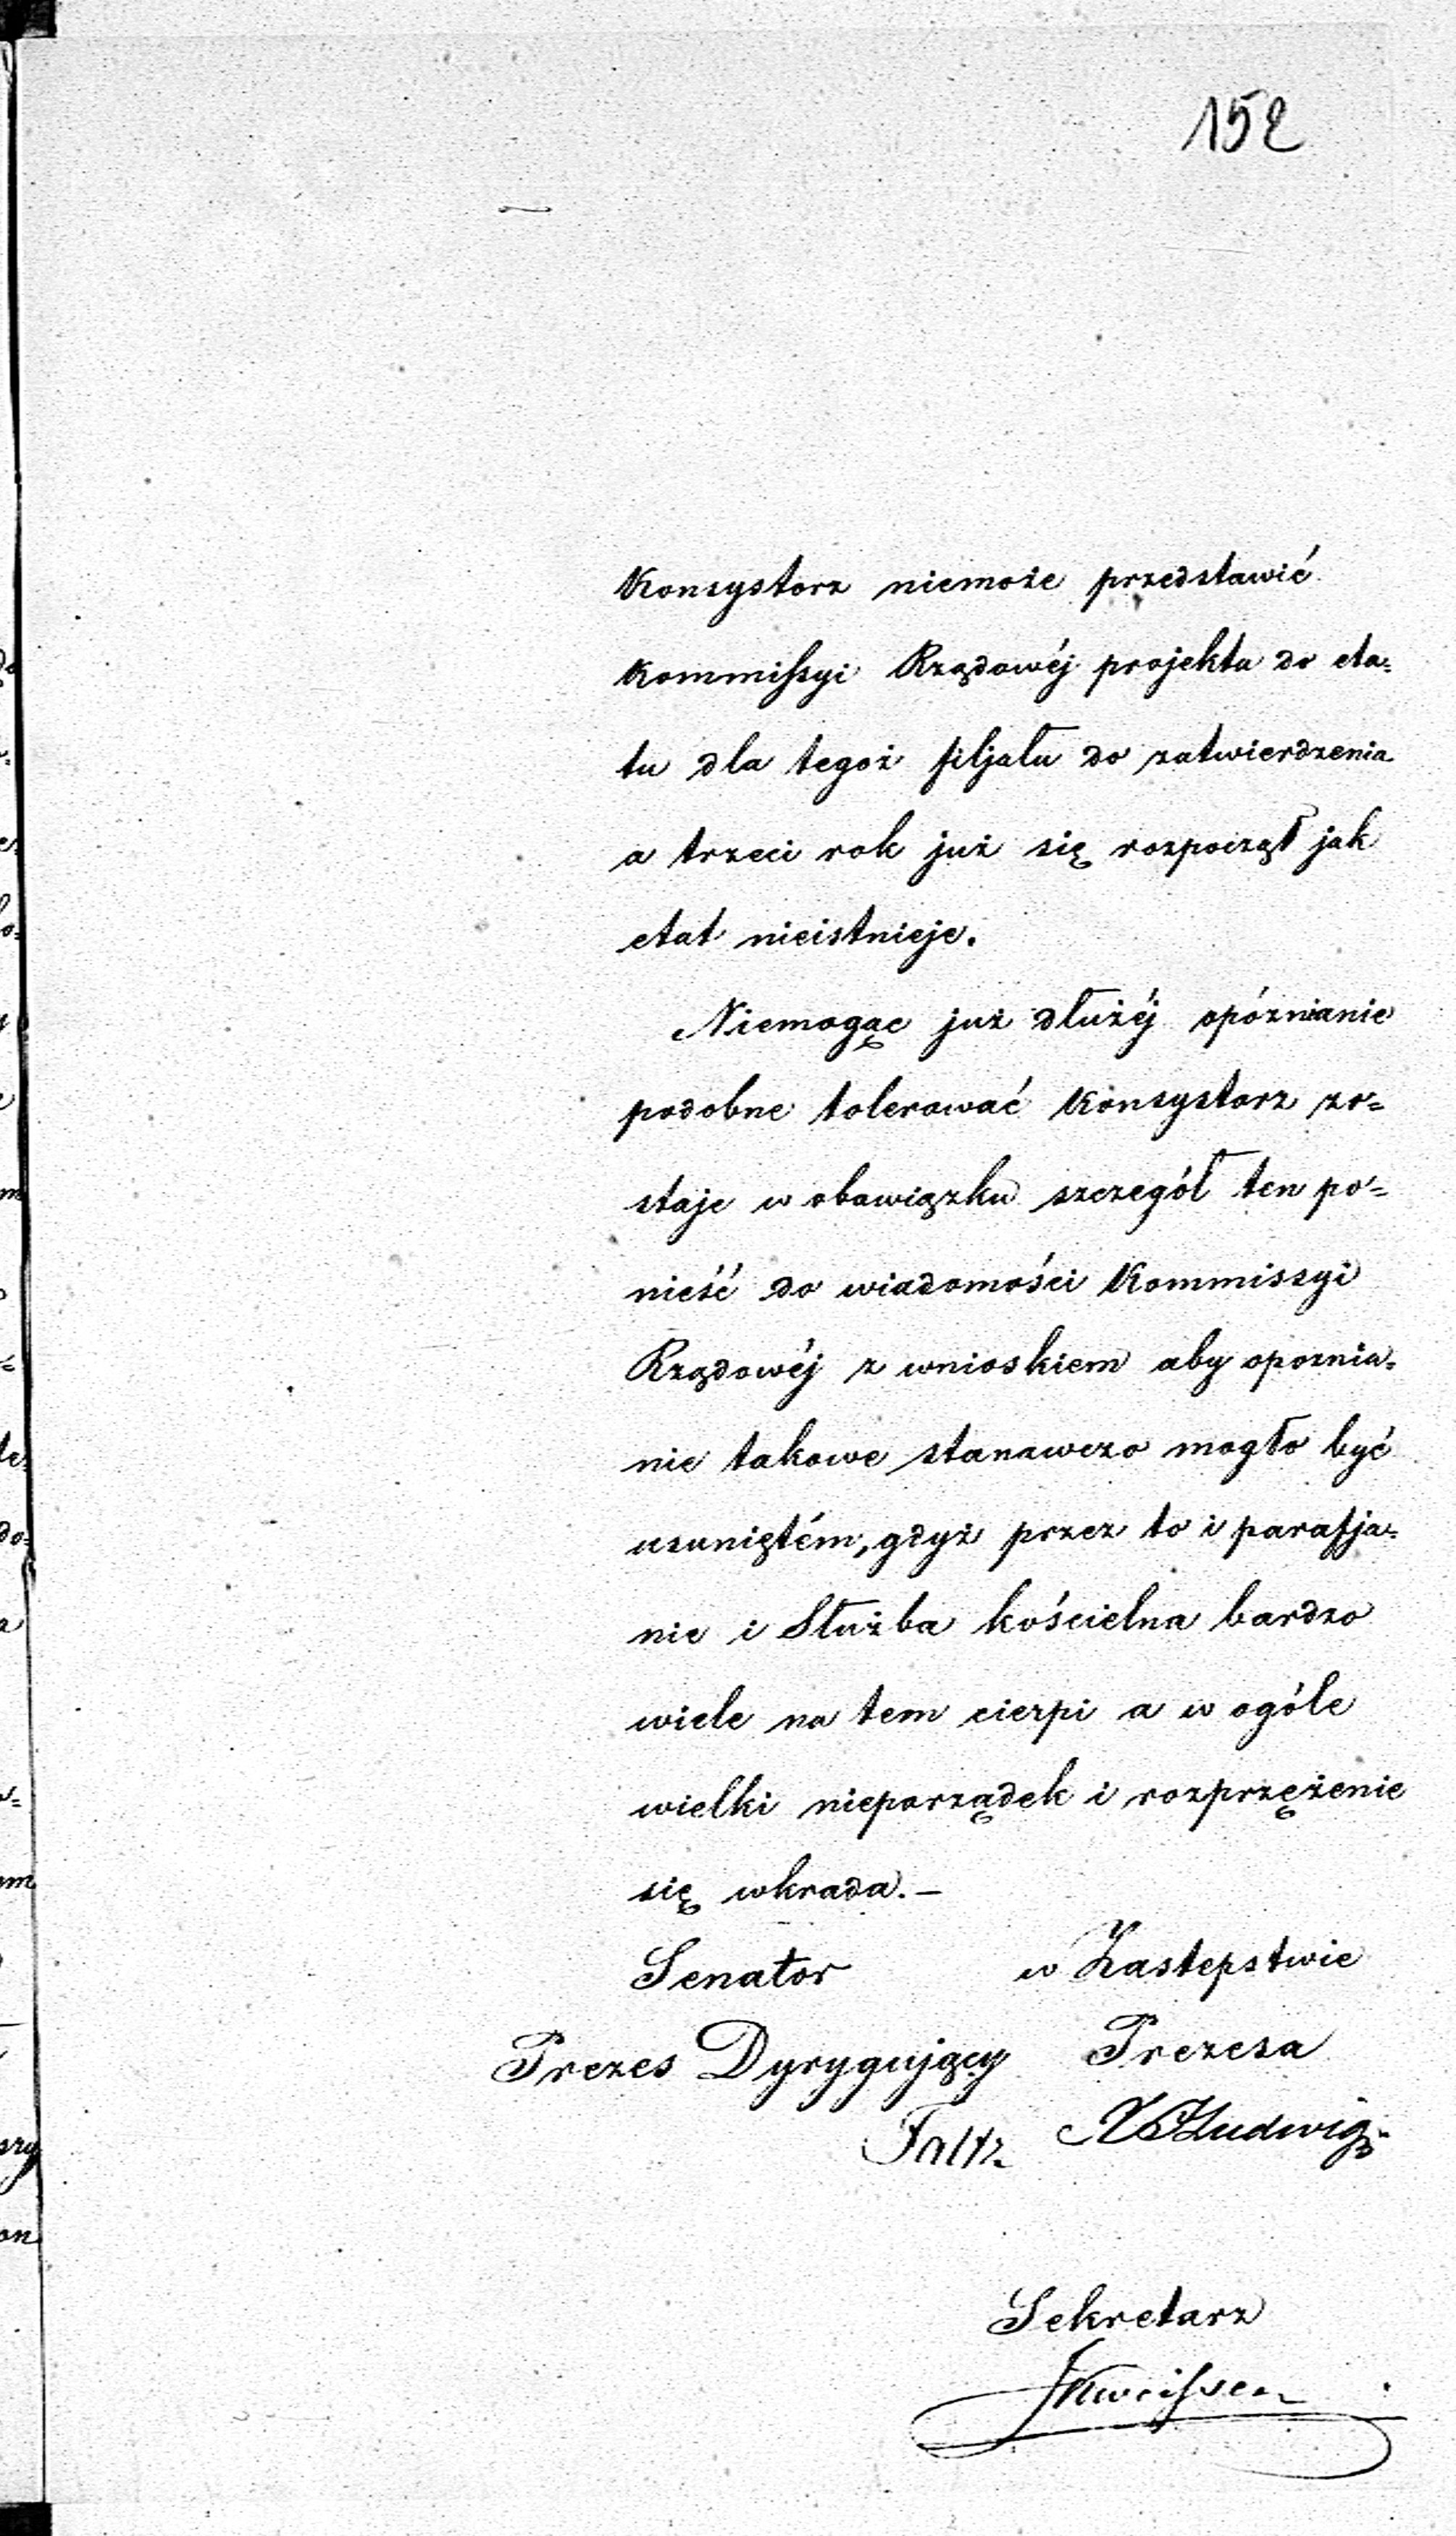 152
Konsystorz niemoże przedstawić
Kommissyi Rządowéj projektu do eta=
tu dla tegoż filjału do zatwierdzenia
a trzeci rok już się rozpoczął jak
etat nieistnieje.
Niemogąc już dłużéj opóznianie
podobne tolerować Konsystorz zo=
staje w obowiązku szczegół ten po=
nieść do wiadomości Kommissyi
Rządowéj z wnioskiem aby opoznia=
nie takowe stanowczo mogło być
usuniętém, gdyż przez to i parafja=
nie i Służba kościelna bardzo
wiele na tem cierpi a w ogóle
wielki nieporządek i rozprzężenie
się wkrada.—
Senator w Zastepstwie
Prezes Dyrygujący Prezesa
Ludwig
Sekretarz